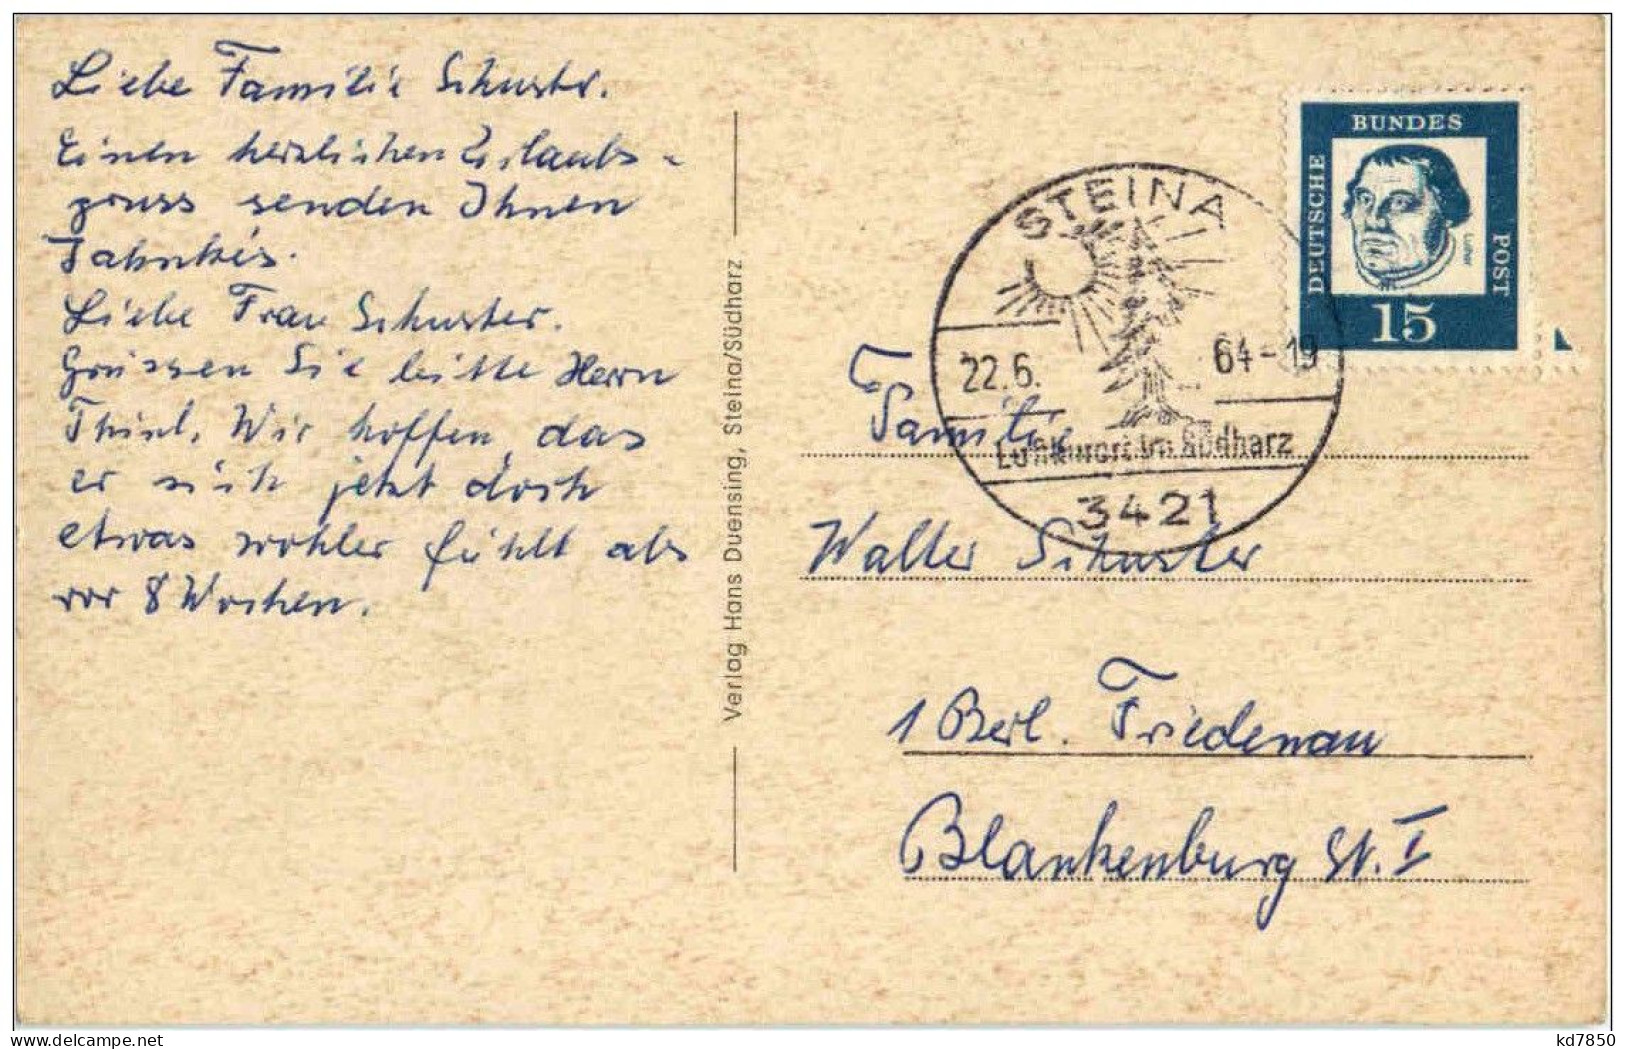 Liebe Familie Schuster.
Einen herzlichen Urlaubs-
gruss senden Ihnen
Jahnkes.
Liebe Frau Schuster.
Grüssen Sie bitte Herrn
Wir hoffen, das
er sich jetzt doch
etwas wohler fühlt als
vor 8 Wochen.
Verlag Hans Duensing, Steina/Südharz
DEUTSCHE
BUNDES
POST
Luther
15
STEINA
22.6. 64-19
Luftkurort im Südharz
3421
Familie
Walter Schuster
1 Berl. Friedenau
Blankenburg St. I
delcampe.net
kd7850